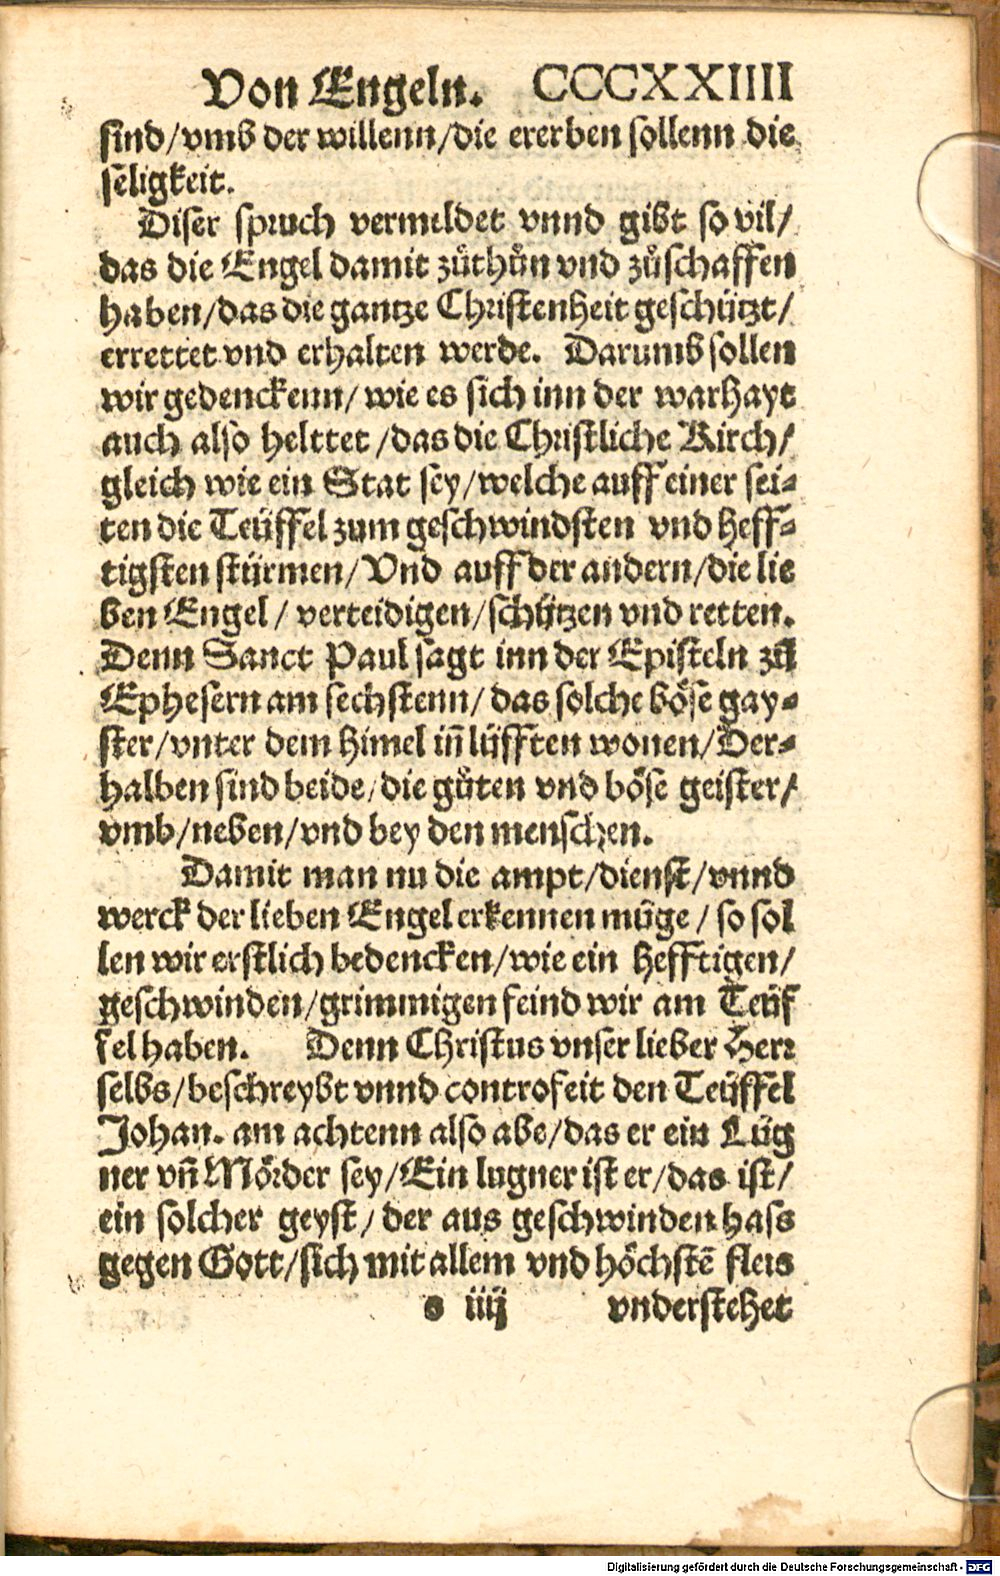 Von Engeln. CCCXXIIII
sind/vmb der willenn/die ererben sollenn die
seligkeit.
Diser spruch vermeldet vnnd gibt so vil/
das die Engel damit zůthůn vnd zůschaffen
haben/das die gantze Christenheit geschützt/
errettet vnd erhalten werde. Darumb sollen
wir gedenckenn/wie es sich inn der warhayt
auch also helttet/das die Christliche Kirch/
gleich wie ein Stat sey/welche auff einer sei-
ten die Teüffel zum geschwindsten vnd heff-
tigsten stürmen/Vnd auff der andern/die lie
ben Engel/verteidigen/schützen vnd retten.
Denn Sanct Paul sagt inn der Episteln zů
Ephesern am sechstenn/das solche böse gay-
ster/vnter dem himel iñ lüfften wonen/Der-
halben sind beide/die gůten vnd böse geister/
vmb/neben/vnd bey den menschen.
Damit man nu die ampt/dienst/vnnd
werck der lieben Engel erkennen müge/so sol
len wir erstlich bedencken/wie ein hefftigen/
geschwinden/grimmigen feind wir am Teüf
fel haben. Denn Christus vnser lieber Herr
selbs/beschreybt vnnd controfeit den Teüffel
Johan. am achtenn also abe/das er ein Lüg
ner vñ Mörder sey/Ein lugner ist er/das ist/
ein solcher geyst/der aus geschwinden hass
gegen Gott/sich mit allem vnd höchstē fleis
s iiij vnderstehet
Digitalisierung gefördert durch die Deutsche Forschungsgemeinschaft - DFG